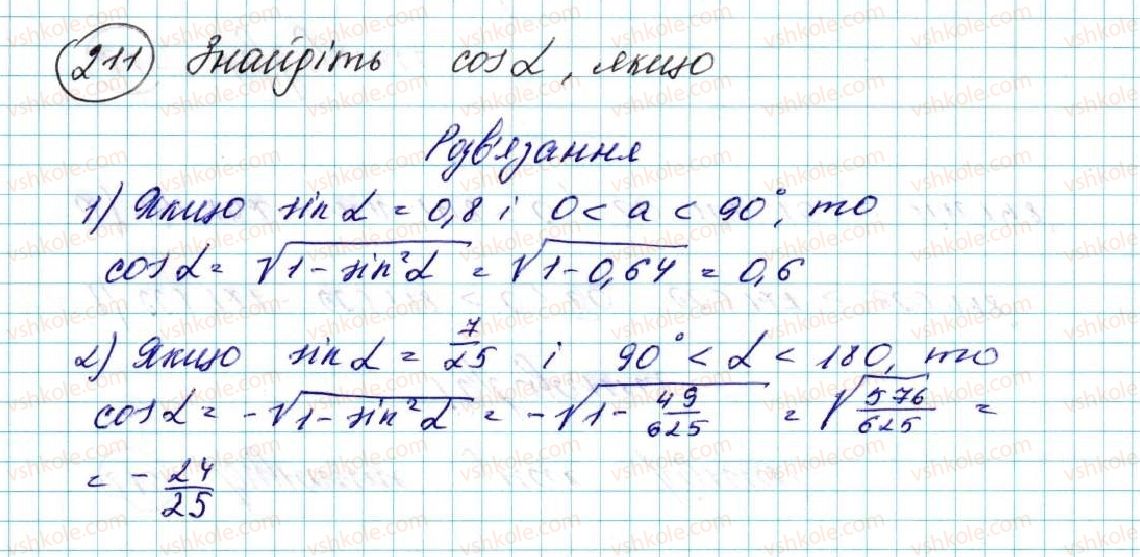 211 Знайдіть cosα, якщо
Розв'язання
1) Якщо sin α = 0,8 і 0 < a < 90°, то
cos α = √(1 - sin²α) = √(1 - 0,64) = 0,6
2) Якщо sin α = 7/25 і 90° < α < 180, то
cos α = -√(1 - sin²α) = -√(1 - 49/625) = √(576/625) =
= - 24/25